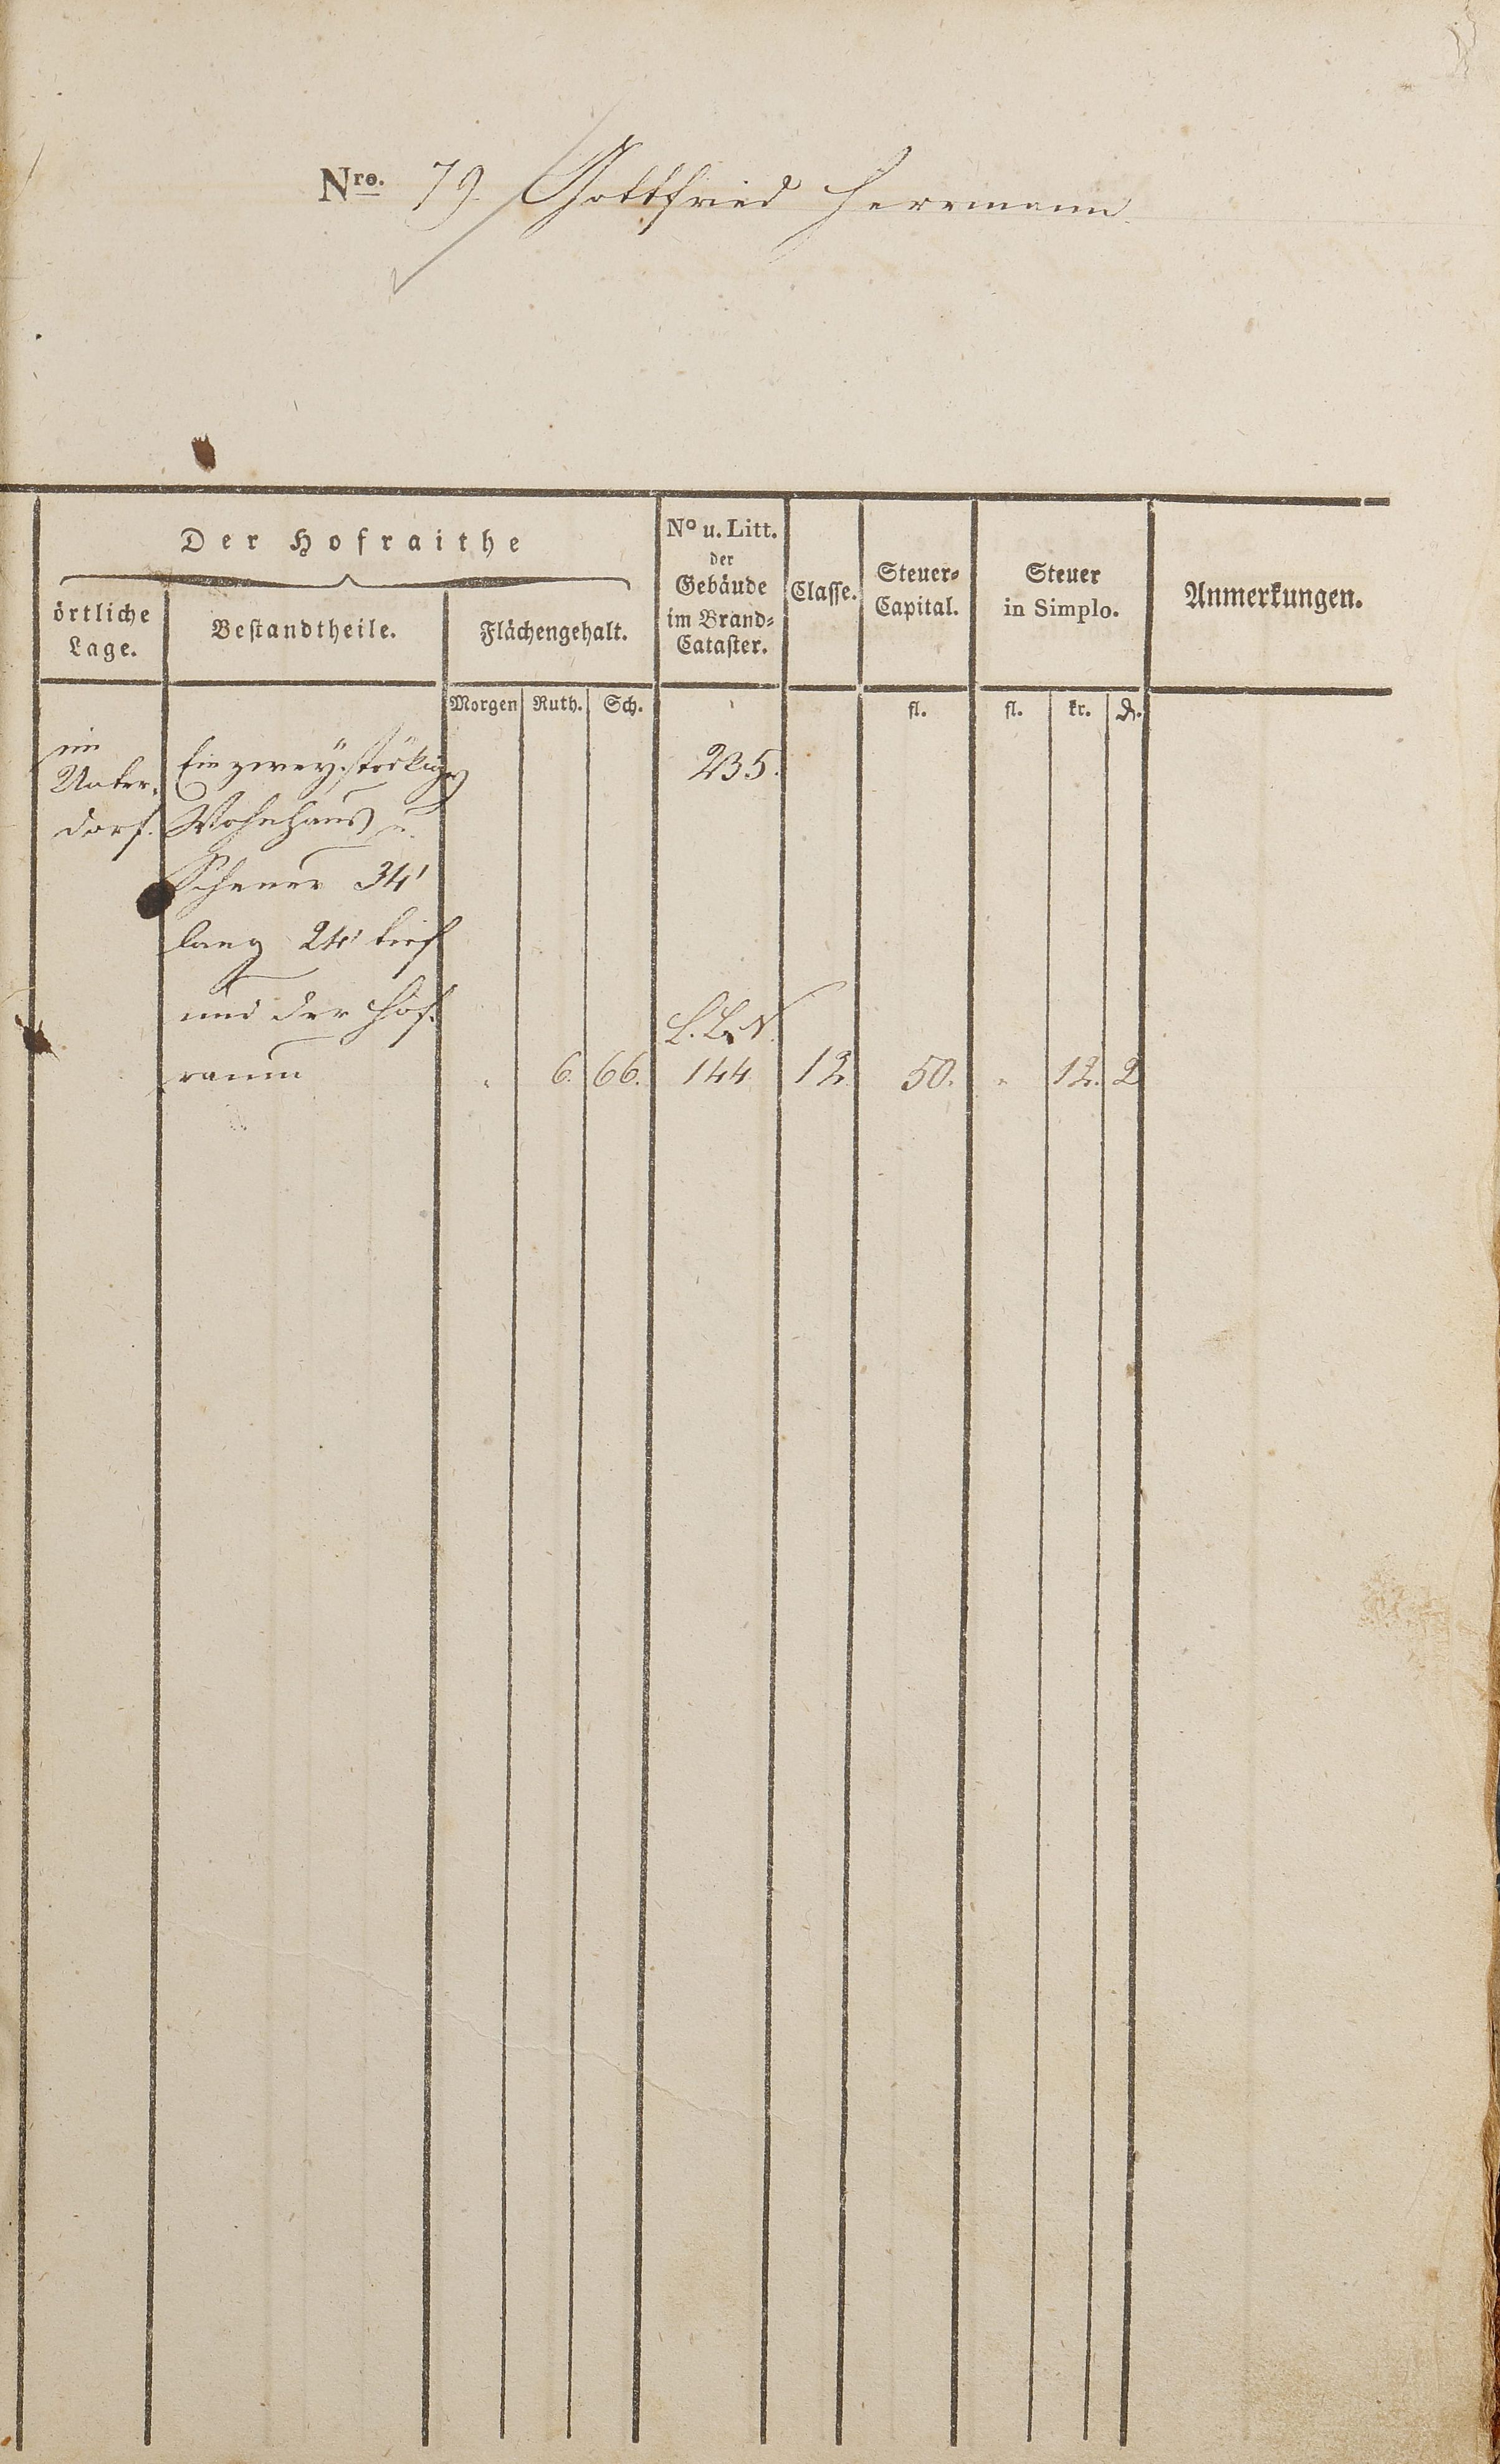 Nro. 79. Gottfried Herrmann.
Der Hofraithe
örtliche Lage.
Bestandtheile.
Flächengehalt.
No u. Litt. der Gebäude im Brand-Cataster.
Classe.
Steuer-Capital.
Steuer in Simplo.
Anmerkungen.
Morgen Ruth. Sch. fl. fl. kr. d.
im Ein zwey-stöckiges 235.
Unter-
dorf. Wohnhaus u.
Scheuer 34'
lang 24' tief
und der Hof-
raum " 6. 66. 144 12. 50. " 12. 2